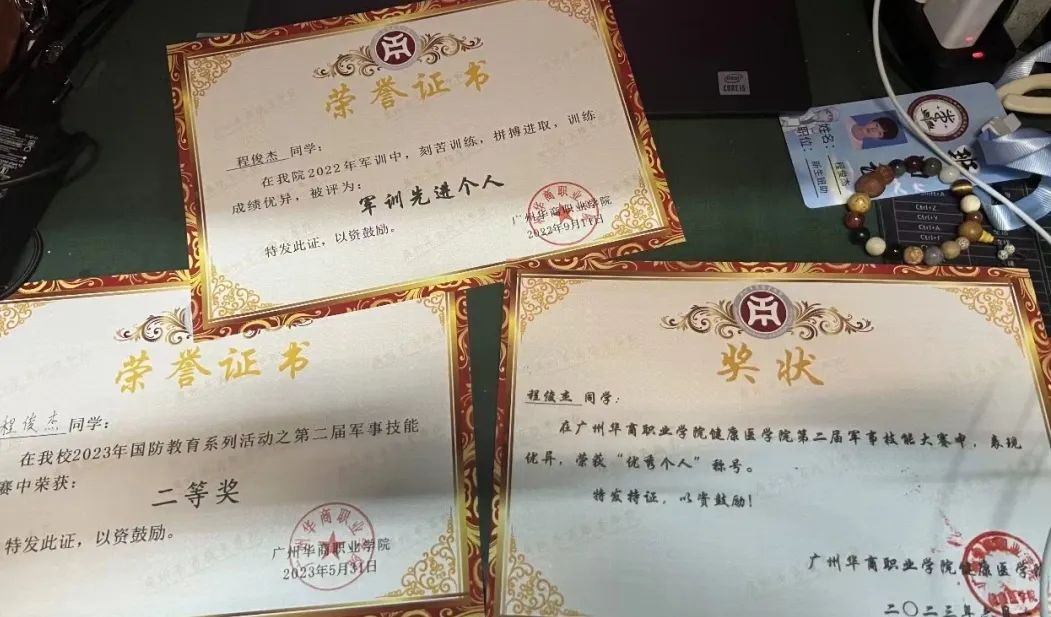 荣誉证书
程俊杰 同学：
在我院2022年军训中，刻苦训练，拼搏进取，训练
成绩优异，被评为：
军训先进个人
特发此证，以资鼓励。
广州华商职业学院
2022年9月11日
intel
CORE i5
姓名：
职位：新生班助
Ctrl+Z
Ctrl+Y
Ctrl+A
荣誉证书
程俊杰 同学：
在我校2023年国防教育系列活动之第二届军事技能
赛中荣获：
二等奖
特发此证，以资鼓励。
广州华商职业学院
2023年5月31日
奖状
程俊杰 同学：
在广州华商职业学院健康医学院第二届军事技能大赛中，表现
优异，荣获“优秀个人”称号。
特发特证，以资鼓励！
广州华商职业学院健康医学
二〇二三年